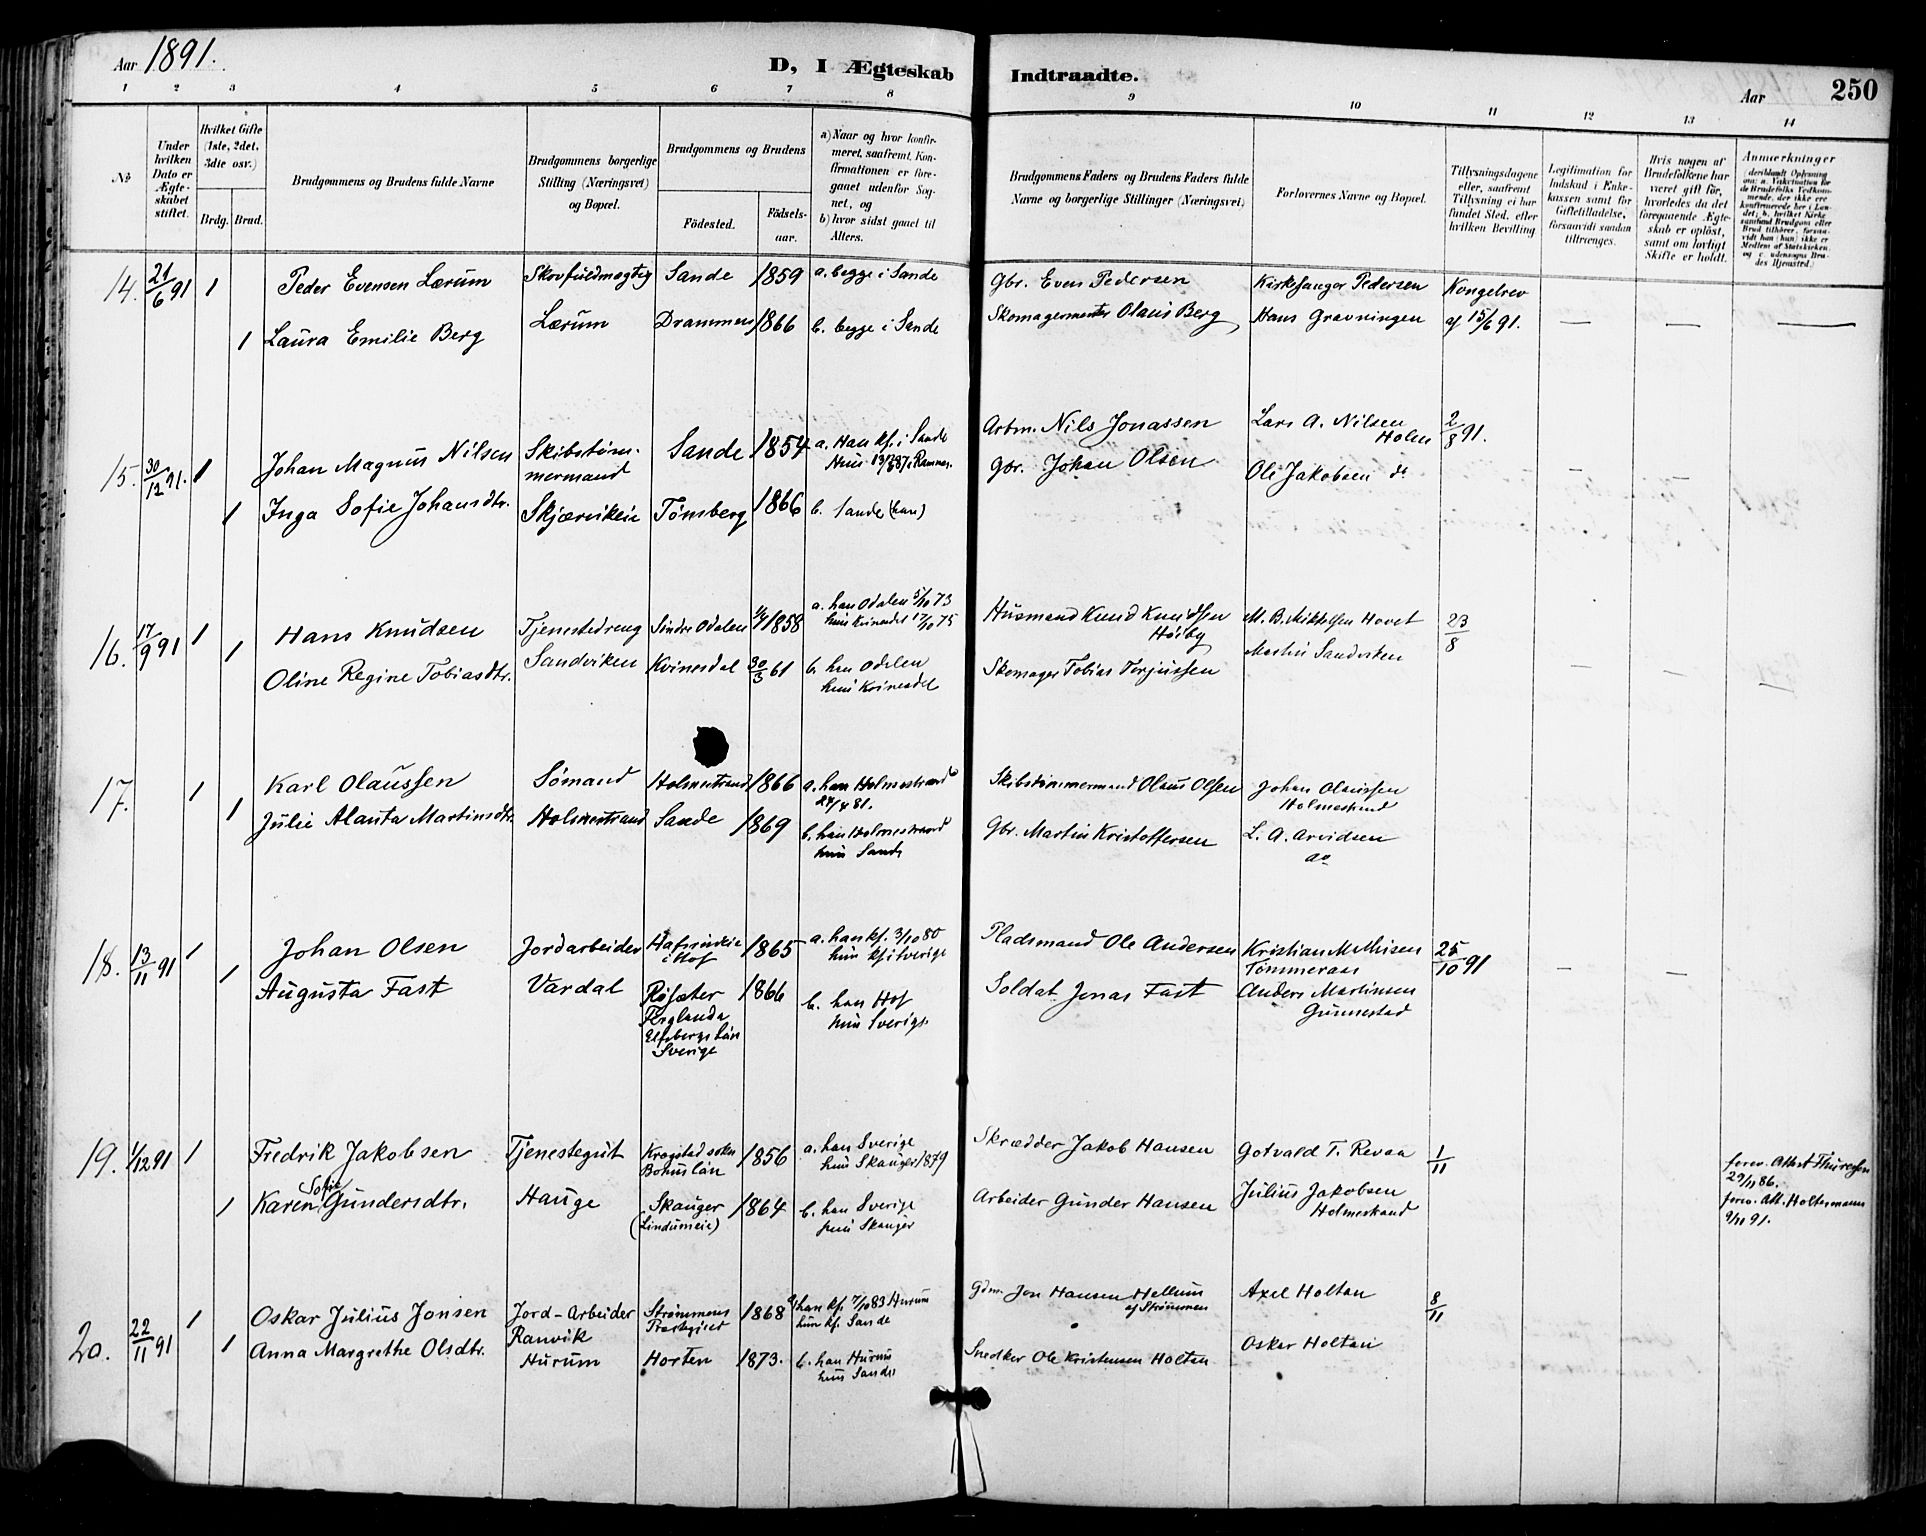 Aar 1891.
D, I Ægteskab Indtraadte.
Aar
250
1 2 3 4 5 6 7 8 9 10 11 12 13 14
No
Under hvilken Dato er Ægteskabet stiftet.
Hvilket Gifte (1ste, 2det, 3die osv.)
Brdg. Brud.
Brudgommens og Brudens fulde Navne
Brudgommens borgerlige Stilling (Næringsvei) og Bopæl.
Brudgommens og Brudens
Fødested.
Fødsels-aar.
a) Naar og hvor konfirmeret, saafremt Konfirmationen er foreganet udenfor Sognet, og
b) hvor sidst gaaet til Alters.
Brudgommens Faders og Brudens Faders fulde Navne og borgerlige Stillinger (Næringsvei)
Forlovernes Navne og Bopæl.
Tillysningsdagene eller, saafremt Tillysning ei har fundet Sted, efter hvilken Bevilling
Legitimation for Indskud i Enkekassen samt for Giftetilladelse, forsaavidt saadan tiltrænges.
Hvis nogen af Brudefolkene har været gift før, hvorledes da det foregaaende Ægteskab er opløst, samt om lovligt Skifte er holdt.
Anmærkninger
14. 21/6 91 1 Peder Evensen Lærum Skovfuldmægtig Sande 1859 a. begge i Sande Gbr. Even Pedersen Kirkesanger Pedersen Kongebrev
1 Laura Emilie Berg Lærum Drammen 1866 b. begge i Sande Skomagermester Olaus Berg Hans Gravningen af 15/6 91. — — —
15. 30/12 91. 1 Johan Magnus Nilsen Skibstømmermand Sande 1854 a. Han kf. i Sande Arbm. Nils Jonassen Lars A. Nilsen Holm 2/8 91.
1 Inga Sofie Johansdtr. Skjærvikeie Tønsberg 1866 b. Sande (han) Gbr. Johan Olsen Ole Jakobsen do — —
16. 17/9 91 1 Hans Knudsen Tjenestedreng Søndre Odalen 1/4 1858 a. han Odalen 5/10 73 hun Kvinesdal 17/10 75 Husmand Knud Knudsen Høiby M. B. Mikkelsen Hovet 23/8
1 Oline Regine Tobiasdtr. Sandviken Kvinesdal 30/3 61 b. han Odalen hun Kvinesdal Skomager Tobias Terjussen Martin Sandviken — — —
17. 1 Karl Olaussen Sømand Holmestrand 1866 a. han Holmestrand 24/4 81. Skibstømmermand Olaus Olsen Johan Olaussen Holmestrand
1 Julie Alanta Martinsdtr. Holmestrand Sande 1869 b. han Holmestrand hun Sande Gbr. Martin Kristoffersen L. A. Arvidsen do
18. 13/11 91 1 Johan Olsen Jordarbeider i Hof 1865 a. han kf. 3/10 80 hun kf. i Sverige Pladsmand Ole Andersen Kristian M. Tømmeraas 25/10 91
1 Augusta Fast Vardal Røsæter Ferglanda Elfsborgs Län Sverige 1866 b. han Hof hun Sverige Soldat Jonas Fast Anders Martinsen Gunnestad — —
19. 1/12 91 1 Fredrik Jakobsen Tjenestegut Krogstad sokn Bohuslän 1856 a. han Sverige hun Skauger 1879 Skrædder Jakob Hansen Gotvald T. Revaa 1/11 forev. Attest Thuresen 29/11 86.
1 Karen Sofie Gundersdtr. Hauge Skauger (Lindumeie) 1864 b. han Sverige hun Skauger Arbeider Gunder Hansen Julius Jakobsen Holmestrand forev. Att. Holtermann 9/11 91.
20. 22/11 91 1 Oskar Julius Jonsen Jord-Arbeider Strømmens Præstegjeld 1868 a. han kf. 7/10 83 Hurum hun kf. Sande Gdm. Jon Hansen Hellum af Strømmen Axel Holtan 8/11
1 Anna Margrethe Olsdtr. Ranvik Hurum Horten 1873. b. han Hurum hun Sande Snedker Ole Kristensen Holtan Oskar Holtan